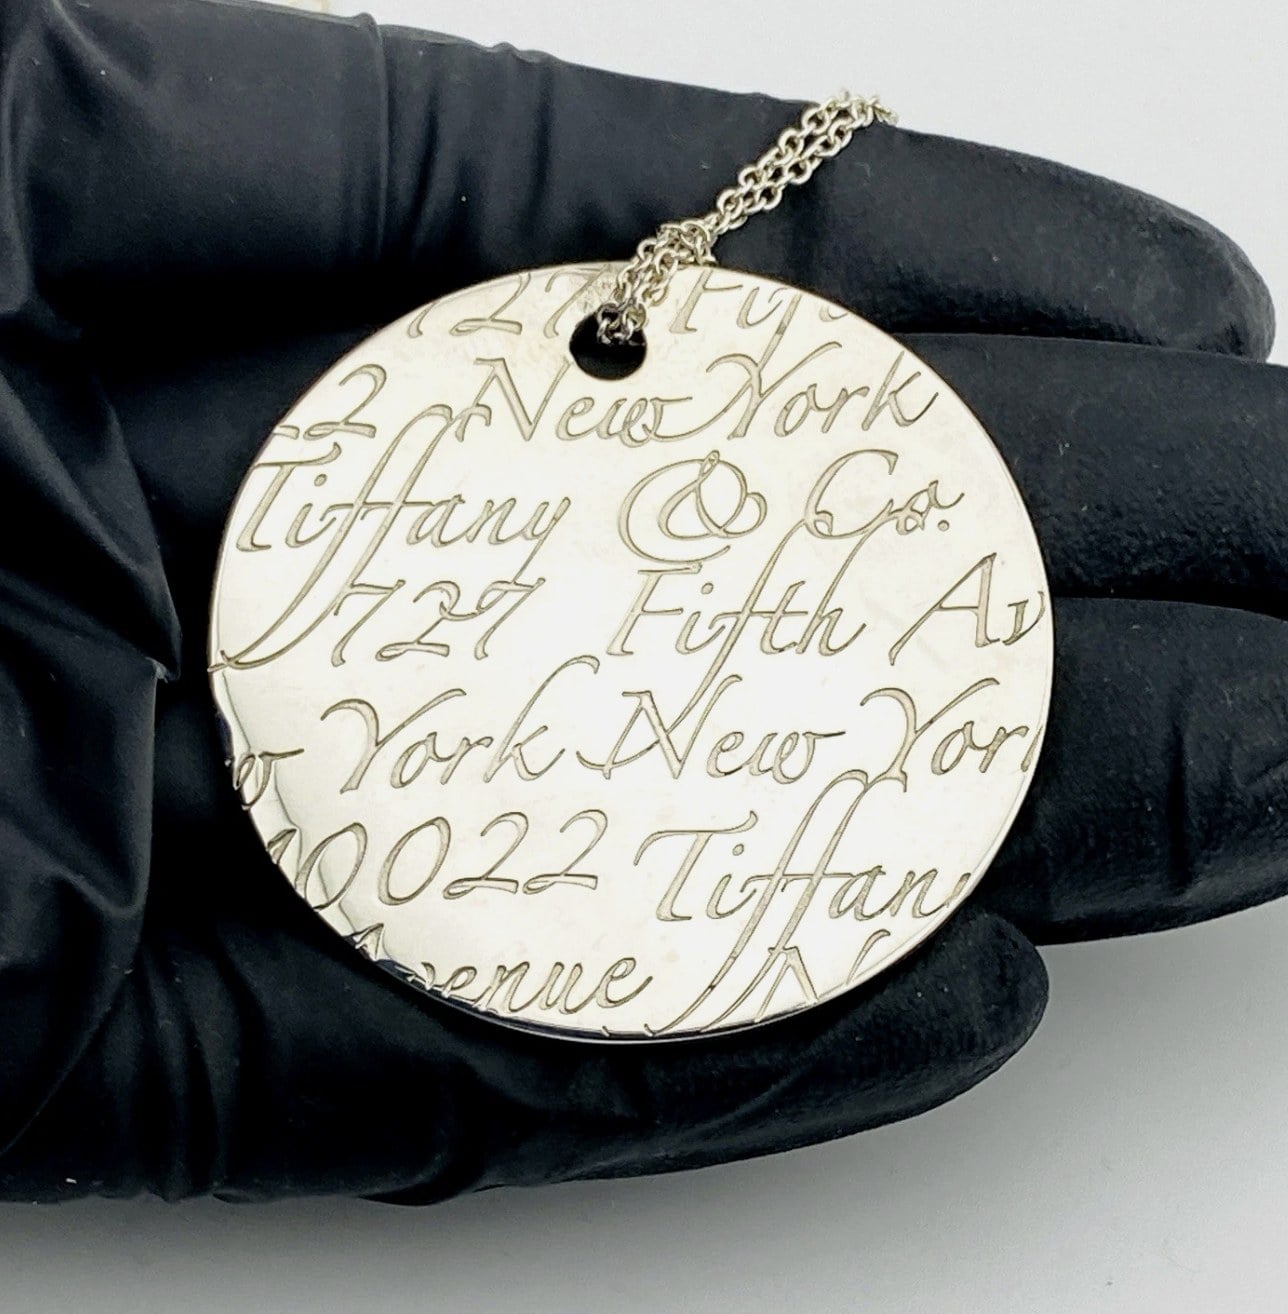 727 Fif
22 New York
Tiffany & Co.
727 Fifth Av
w York New York
10022 Tiffany
Avenue N